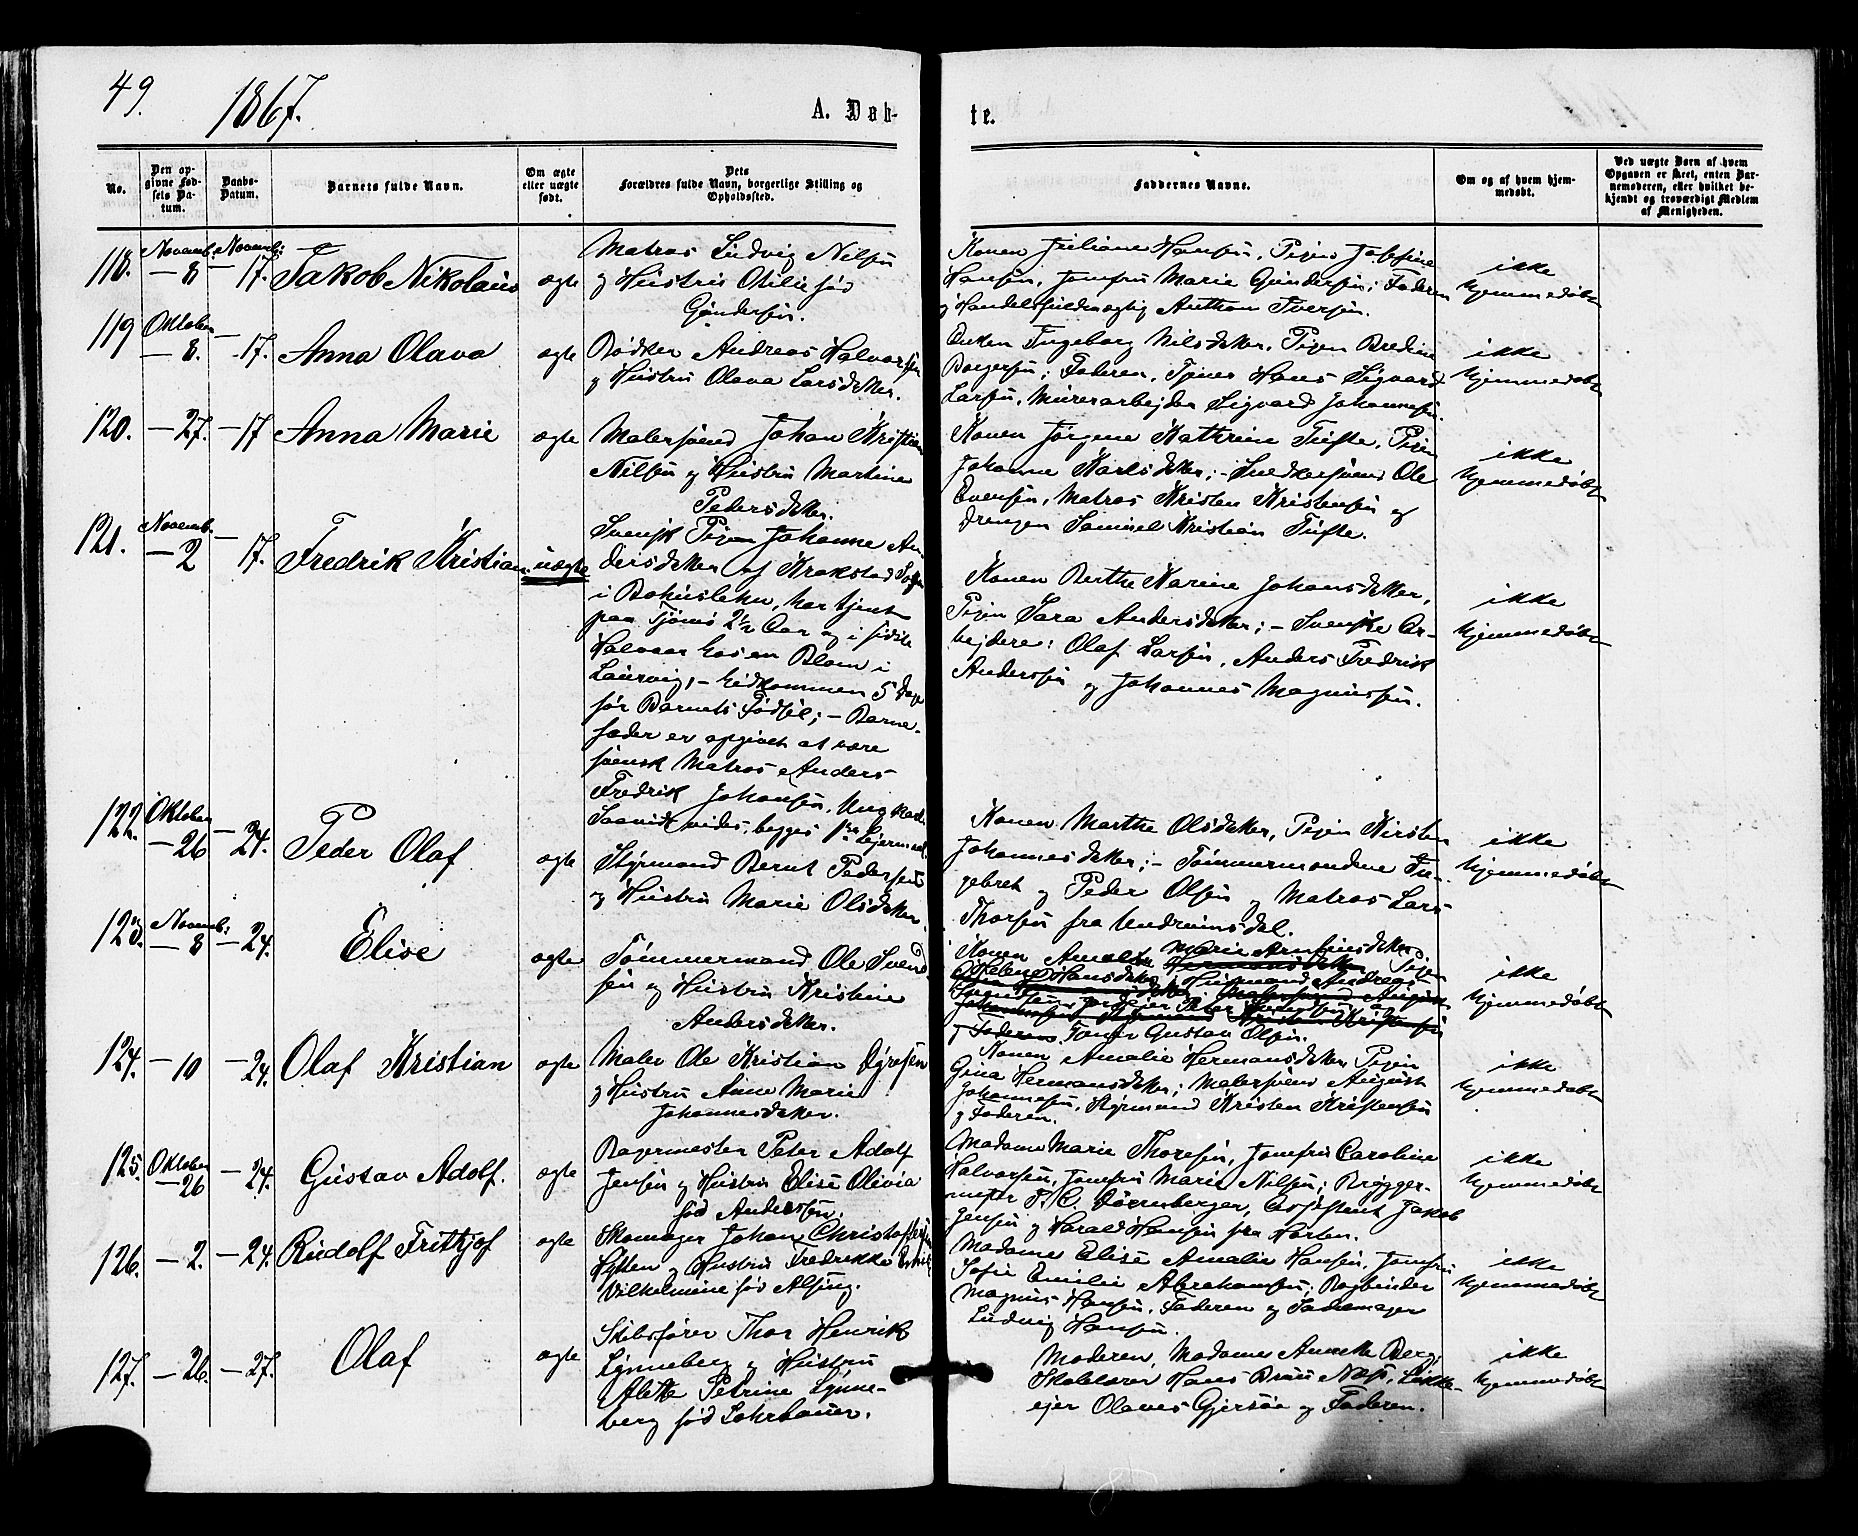 49.
1867.
A. Døb-
te.
No.
Den op-
givne Fød-
sels Da-
tum.
Daabs-
Datum.
Barnets fulde Navn.
Om ægte
eller uægte
født.
Dets
Forældres fulde Navn, borgerlige Stilling og
Opholdssted.
Faddernes Navne.
Om og af hvem hjem-
medøbt.
Ved uægte Barn af hvem
Opgaven er skeet, enten Bar-
nemoderen, eller hvilket be-
kjendt og troværdigt Medlem
af Menigheden.
118.
Novemb.
— 8
Novemb:
— 17.
Jakob Nikolaus
ægte
Matros Ludvig Nilsen
og Hustru Otilie fød
Gundersen.
Konen Juliane Hansen, Pigen Josefine
Hansen, Jomfru Marie Gundersen; Faderen
og Handelsfuldmægtig Anthon Iversen.
ikke
hjemmedøbt
119
Oktober
— 8.
— 17.
Anna Olava
ægte
Bødker Andreas Halvorsen
og Hustru Olava Larsdtter.
Enken Ingeborg Nilsdtter, Pigen Bredine
Borgersen; Faderen, Tjener Hans Sigvard
Larsen, Murerarbejder Sigvard Johannesen.
ikke
hjemmedøbt
120.
— 27.
— 17
Anna Marie
ægte
Malersvend Johan Kristian
Nilsen og Hustru Martine
Pedersdtter.
Konen Jørgene Kathrine Tufte, Pigen
Johanne Karlsdtter; — Snedkersvend Ole
Evensen, Matros Kristen Kristensen og
Drengen Samuel Kristian Tufte.
ikke
hjemmedøbt
121.
Novemb.
— 2
— 17.
Fredrik Kristian
uægte
Svensk Pigen Johanne An-
dersdtter af Krokstad Sogn
i Bohuslehn, har tjent
paa Tjømø 2½ Aar og i sidste
Halvaar hos en Blom i
Laurvig, — hidkommen 5 Dage
før Barnets Fødsel; — Barne-
fader er opgivet at være
svensk Matros Anders
Fredrik Johansen, Ungkarl,
begges 1ste Lejermaal.
Konen Berthe Karine Johansdtter,
Pigen Sara Andersdtter; — Svenske Ar-
bejdere: Olaf Larsen, Anders Fredrik
Andersen og Johannes Magnussen.
ikke
hjemmedøbt
122.
Oktober
— 26
— 24.
Peder Olaf
ægte
Styrmand Bernt Pedersen
og Hustru Marie Olsdtter.
Konen Marthe Olsdtter, Pigen Kirsten
Johannesdtter; — Tømmermændene In-
gebret og Peder Olsen og Matros Lars
Thorsen fra Undrumsdal.
ikke
hjemmedøbt
123.
Novemb:
— 8
— 24.
Elise
ægte
Tømmermand Ole Svend-
sen og Hustru Kristine
Andersdtter.
Konen Marie Arnesdtter Pigen
Helene Hansdtter, Husmand Andreas
Peter
Gustav Olsen.
ikke
hjemmedøbt
124.
— 10
— 24.
Olaf Kristian
ægte
Maler Ole Kristian Dyresen
og Hustru Anne Marie
Johannesdtter.
Konen Amalie Hermansdtter, Pigen
Gina Hermansdtter; Malersvend August
Johannesen, Styrmand Kristen Kristensen
og Faderen.
ikke
hjemmedøbt
125.
Oktober
— 26
— 24.
Gustav Adolf.
ægte
Bagermester Peter Adolf
Jensen og Hustru Elise Olivia
fød Anderssen.
Madame Marie Thoresen, Jomfru Caroline
Halvorsen, Jomfru Marie Nilsen; Brygger-
mester Dørrenberger, Assistent Jakob
Jensen og Harald Hansen fra Horten.
ikke
hjemmedøbt
126.
— 2.
— 24.
Rudolf Frithjof
ægte
Skomager Johan Christoffersen
Hytten og Hustru Fredrikke Emilie
Vilhelmine fød Alsing.
Madame Elise Amalie Hansen, Jomfru
Sofie Emilie Abrahamsen; Bogbinder
Magnus Hansen, Faderen og Sadelmager
Ludvig Hansen.
ikke
hjemmedøbt
127.
— 26.
— 27.
Olaf
ægte
Skibsfører Thor Henrik
Lynneberg og Hustru
Alette Petrine Lynne-
berg fød Lohrbauer.
Moderen, Madame Annette Berg;
Skolelærer Hans Bruu Næss, Lökke-
ejer Olaves Gjersøe og Faderen.
ikke
hjemmedøbt